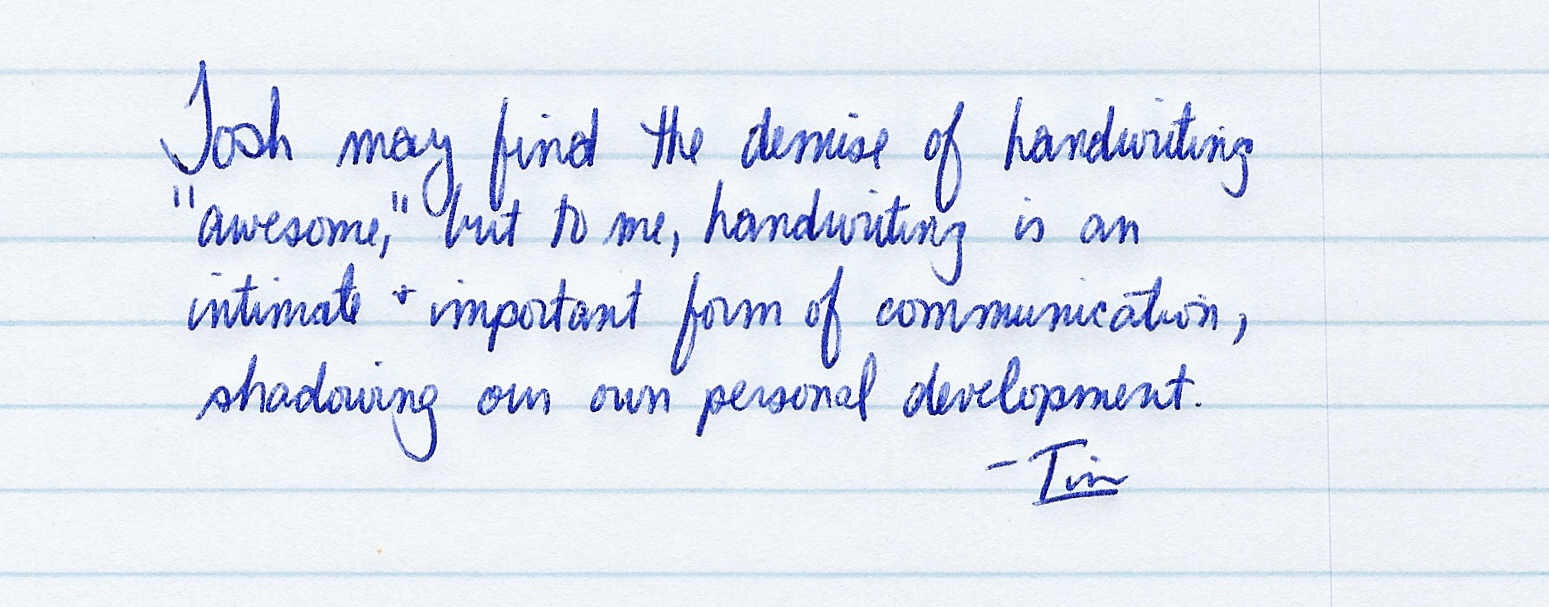 Josh may find the demise of handwriting
"awesome," but to me, handwriting is an
intimate + important form of communication,
shadowing our own personal development.
- Tim